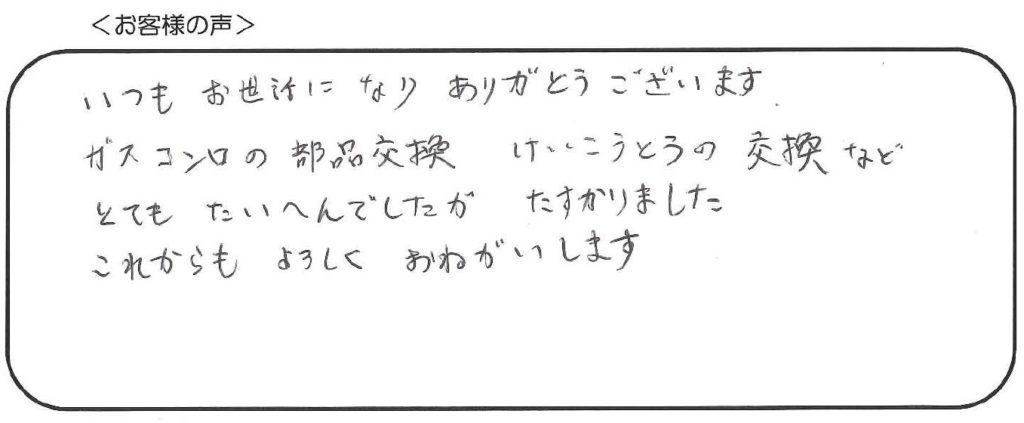 ＜お客様の声＞
いつも お世話に なり ありがとうございます.
ガスコンロの 部品交換 けいこうとうの 交換 など
とても たいへんでしたが たすかりました
これからも よろしく おねがいします